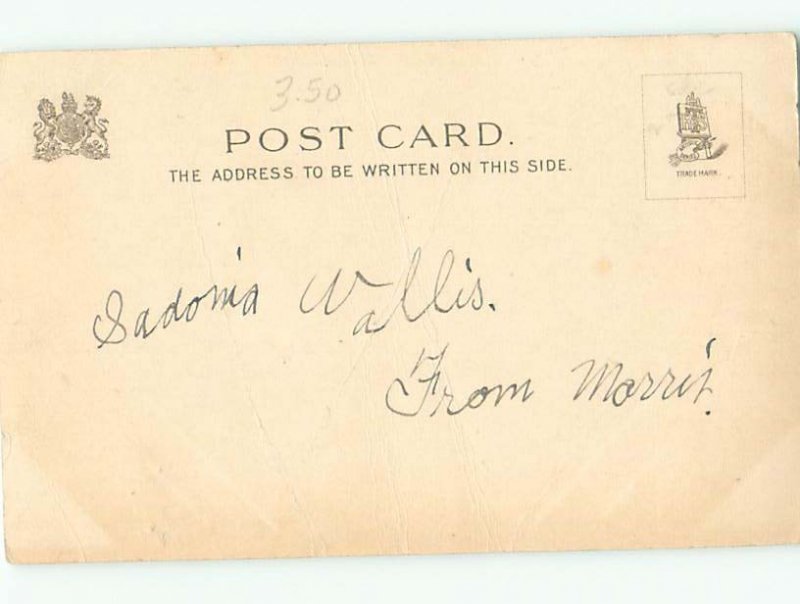 3.50
POST CARD.
TRADE MARK.
THE ADDRESS TO BE WRITTEN ON THIS SIDE.
Sadonia Wallis.
From Morris.